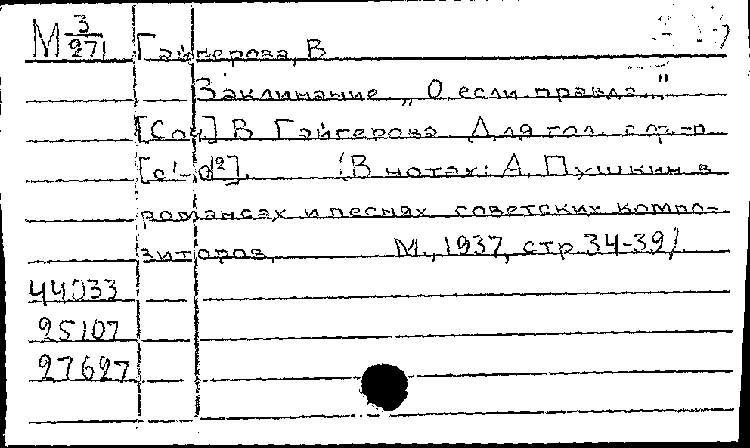 М 3/271 Гайгерова, В
Заклинание „О если правда..."
[Соч] В Гайгерова Для гол. с ф.-п.
[c¹-d²]. (В нотах: А. Пушкин в
романсах и песнях советских компо-
зиторов. М., 1937, стр 34-39)
44033
25107
27627